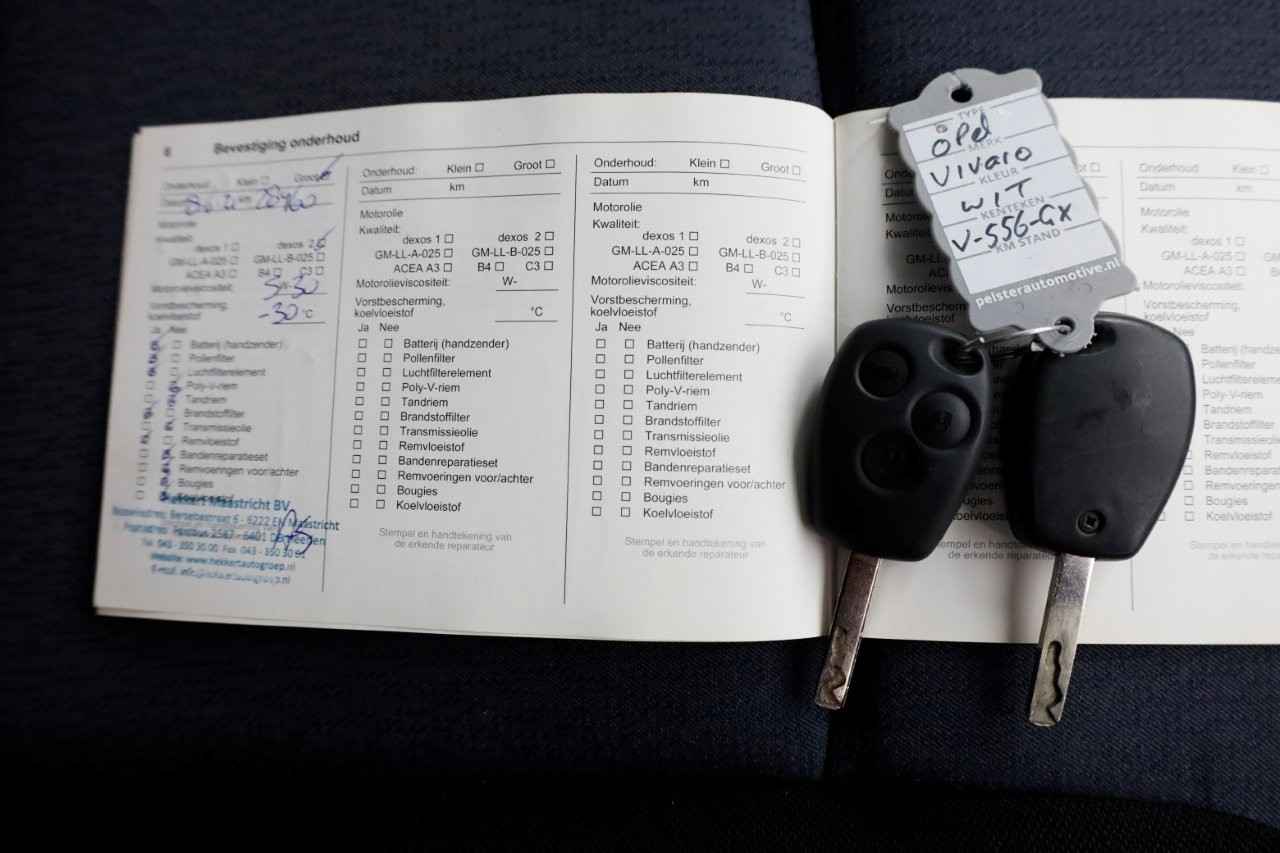 6 Bevestiging onderhoud
Onderhoud: Klein ☐ Groot
Datum km
Motorolie
Kwaliteit:
dexos 1 ☐ dexos 2
GM-LL-A-025 ☐ GM-LL-B-025 ☐
ACEA A3 ☐ B4 ☐ C3 ☐
Motorolieviscositeit:
5 W- 30
Vorstbescherming,
koelvloeistof -30 °C
Ja Nee
Batterij (handzender)
Pollenfilter
Luchtfilterelement
Poly-V-riem
Tandriem
Brandstoffilter
Transmissieolie
Remvloeistof
Bandenreparatieset
Remvoeringen voor/achter
Bougies
Maastricht BV
6 - 6222 Maastricht
6401 Heerlen
Tel. 043 - 350 30 00 Fax 043 - 350 30
www.hekkertautogroep.nl
Onderhoud: Klein ☐ Groot ☐
Datum km
Motorolie
Kwaliteit:
dexos 1 ☐ dexos 2 ☐
GM-LL-A-025 ☐ GM-LL-B-025 ☐
ACEA A3 ☐ B4 ☐ C3 ☐
Motorolieviscositeit: W-
Vorstbescherming,
koelvloeistof °C
Ja Nee
☐ ☐ Batterij (handzender)
☐ ☐ Pollenfilter
☐ ☐ Luchtfilterelement
☐ ☐ Poly-V-riem
☐ ☐ Tandriem
☐ ☐ Brandstoffilter
☐ ☐ Transmissieolie
☐ ☐ Remvloeistof
☐ ☐ Bandenreparatieset
☐ ☐ Remvoeringen voor/achter
☐ ☐ Bougies
☐ ☐ Koelvloeistof
Stempel en handtekening van
de erkende reparateur
Onderhoud: Klein ☐ Groot ☐
Datum km
Motorolie
Kwaliteit:
dexos 1 ☐ dexos 2 ☐
GM-LL-A-025 ☐ GM-LL-B-025 ☐
ACEA A3 ☐ B4 ☐ C3 ☐
Motorolieviscositeit: W-
Vorstbescherming,
koelvloeistof °C
Ja Nee
☐ ☐ Batterij (handzender)
☐ ☐ Pollenfilter
☐ ☐ Luchtfilterelement
☐ ☐ Poly-V-riem
☐ ☐ Tandriem
☐ ☐ Brandstoffilter
☐ ☐ Transmissieolie
☐ ☐ Remvloeistof
☐ ☐ Bandenreparatieset
☐ ☐ Remvoeringen voor/achter
☐ ☐ Bougies
☐ ☐ Koelvloeistof
Stempel en handtekening van
de erkende reparateur
TYPE
Opel
MERK
Vivaro
KLEUR
WIT
KENTEKEN
V-556-GX
KM STAND
pelsterautomotive.nl
Stempel en handtekening van
de erkende reparateur
Onderhoud: Klein ☐
Datum km
Motorolie
Kwaliteit:
dexos 1 ☐
GM-LL-A-025 ☐
ACEA A3 ☐
Motorolieviscositeit:
Nee
Batterij (handzender)
Pollenfilter
Luchtfilterelement
Poly-V-riem
Tandriem
Brandstoffilter
Transmissieolie
Remvloeistof
Bougies
Koelvloeistof